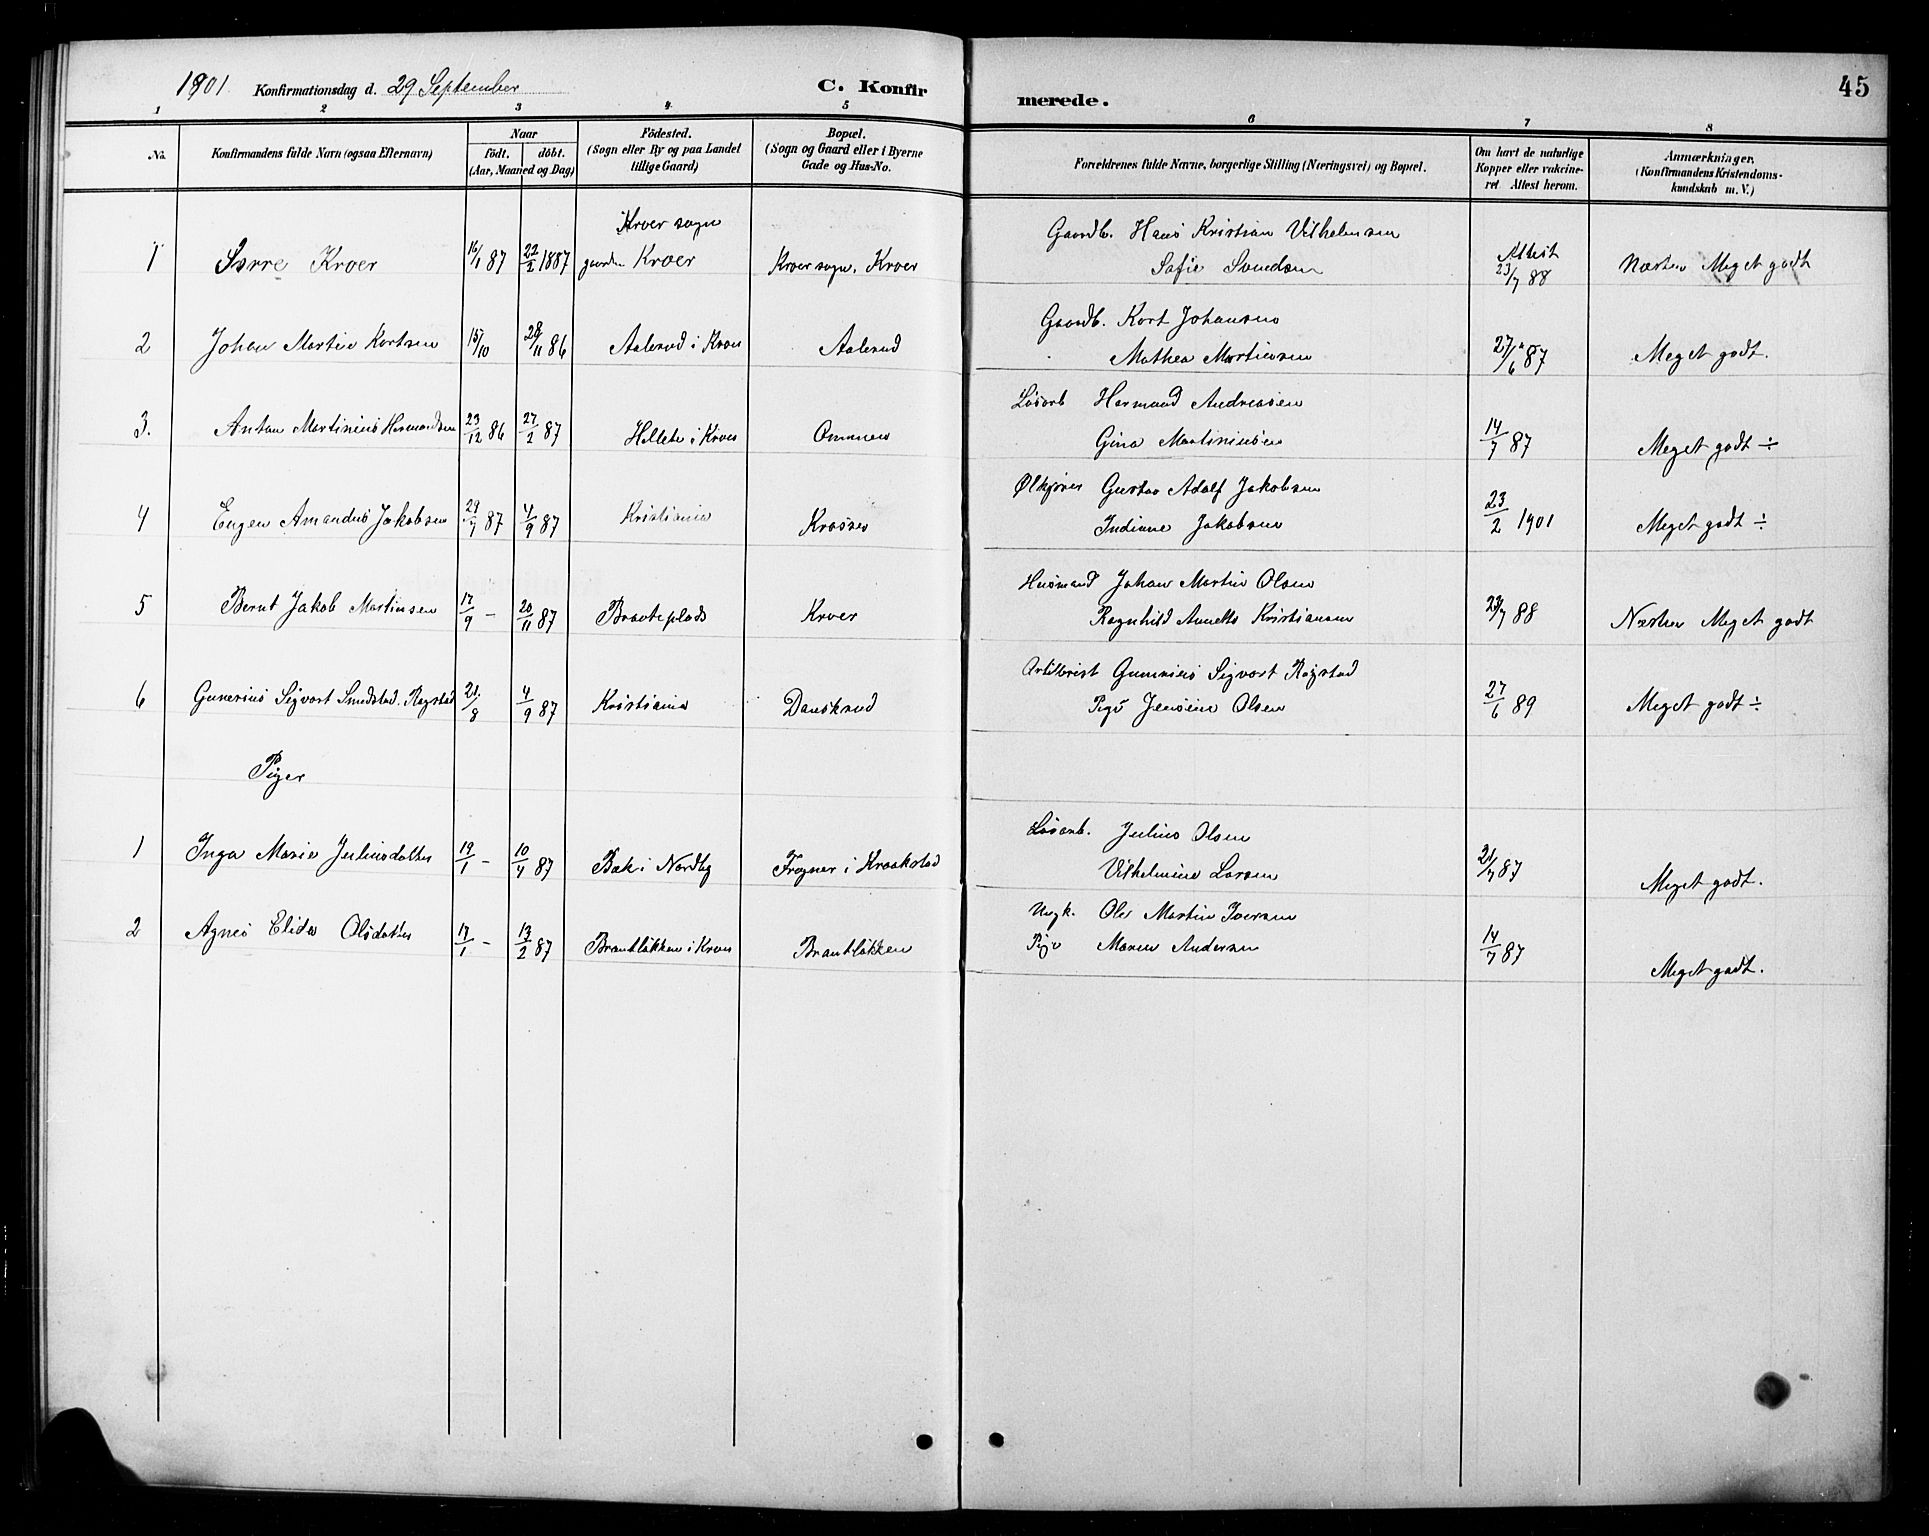 1901 Konfirmationsdag d. 29 September
C. Konfirmerede.
45
1 2 3 4 5 6 7 8
No.
Konfirmandens fulde Navn (ogsaa Efternavn)
Naar
födt. döbt.
(Aar, Maaned og Dag)
Födested.
(Sogn eller By og paa Landet
tillige Gaard)
Bopæl.
(Sogn og Gaard eller i Byerne
Gade og Hus-No.
Forældrenes fulde Navne, borgerlige Stilling (Næringsvei) og Bopæl.
Om havt de naturlige
Kopper eller vakcine-
ret Attest herom.
Anmærkninger.
(Konfirmandens Kristendoms-
kundskab m. V.)
Kroer sogn Gaardb. Hans Kristian Vilhelmsen
1 Sverre Kroer 16/1 87 22/2 1887 gaarden Kroer Kroer sogn, Kroer Sofie Svendsen Attest 23/7 88 Næsten Meget godt
Gaardb. Kort Johansen
2 Johan Martin Kortsen 15/10 28/11 86 Aalerud i Kroer Aalerud Mathea Martinsen 27/6 87 Meget godt.
Løsarb Hermand Andreasen
3. Anton Martinius Hermandsen 23/12 86 27/2 87 i Kroer Gina Martiniusen 14/7 87 Meget godt ÷
Ølkjører Gustav Adolf Jakobsen
4 Eugen Amandus Jakobsen 29/7 87 4/9 87 Kristiania Indiane Jakobsen 23/2 1901 Meget godt ÷
Husmand Johan Martin Olsen
5 Bernt Jakob Martinsen 17/9 - 20/11 87 Kroer Ragnhild Annette Kristiansen 23/7 88 Næsten Meget godt
Gunerius Sigvart Rogstad
6 Gunerius Sigvart Smedstad Rogstad 21/8 4/9 87 Kristiania Danskrud Pige Jensine Olsen 27/6 89 Meget godt ÷
Piger
Løsarb. Julius Olsen
1 Inga Marie Juliusdatter 19/1 - 10/4 87 Bæk i Nordby Frogner i Kraakstad Vilhelmine Larsen 21/7 87 Meget godt.
Ungk. Ole Martin Iversen
2 Agnes Elida Olsdatter 17/1 - 13/2 87 Brantløkken i Kroer Brantløkken Pige Maren Andersen 14/7 87 Meget godt.